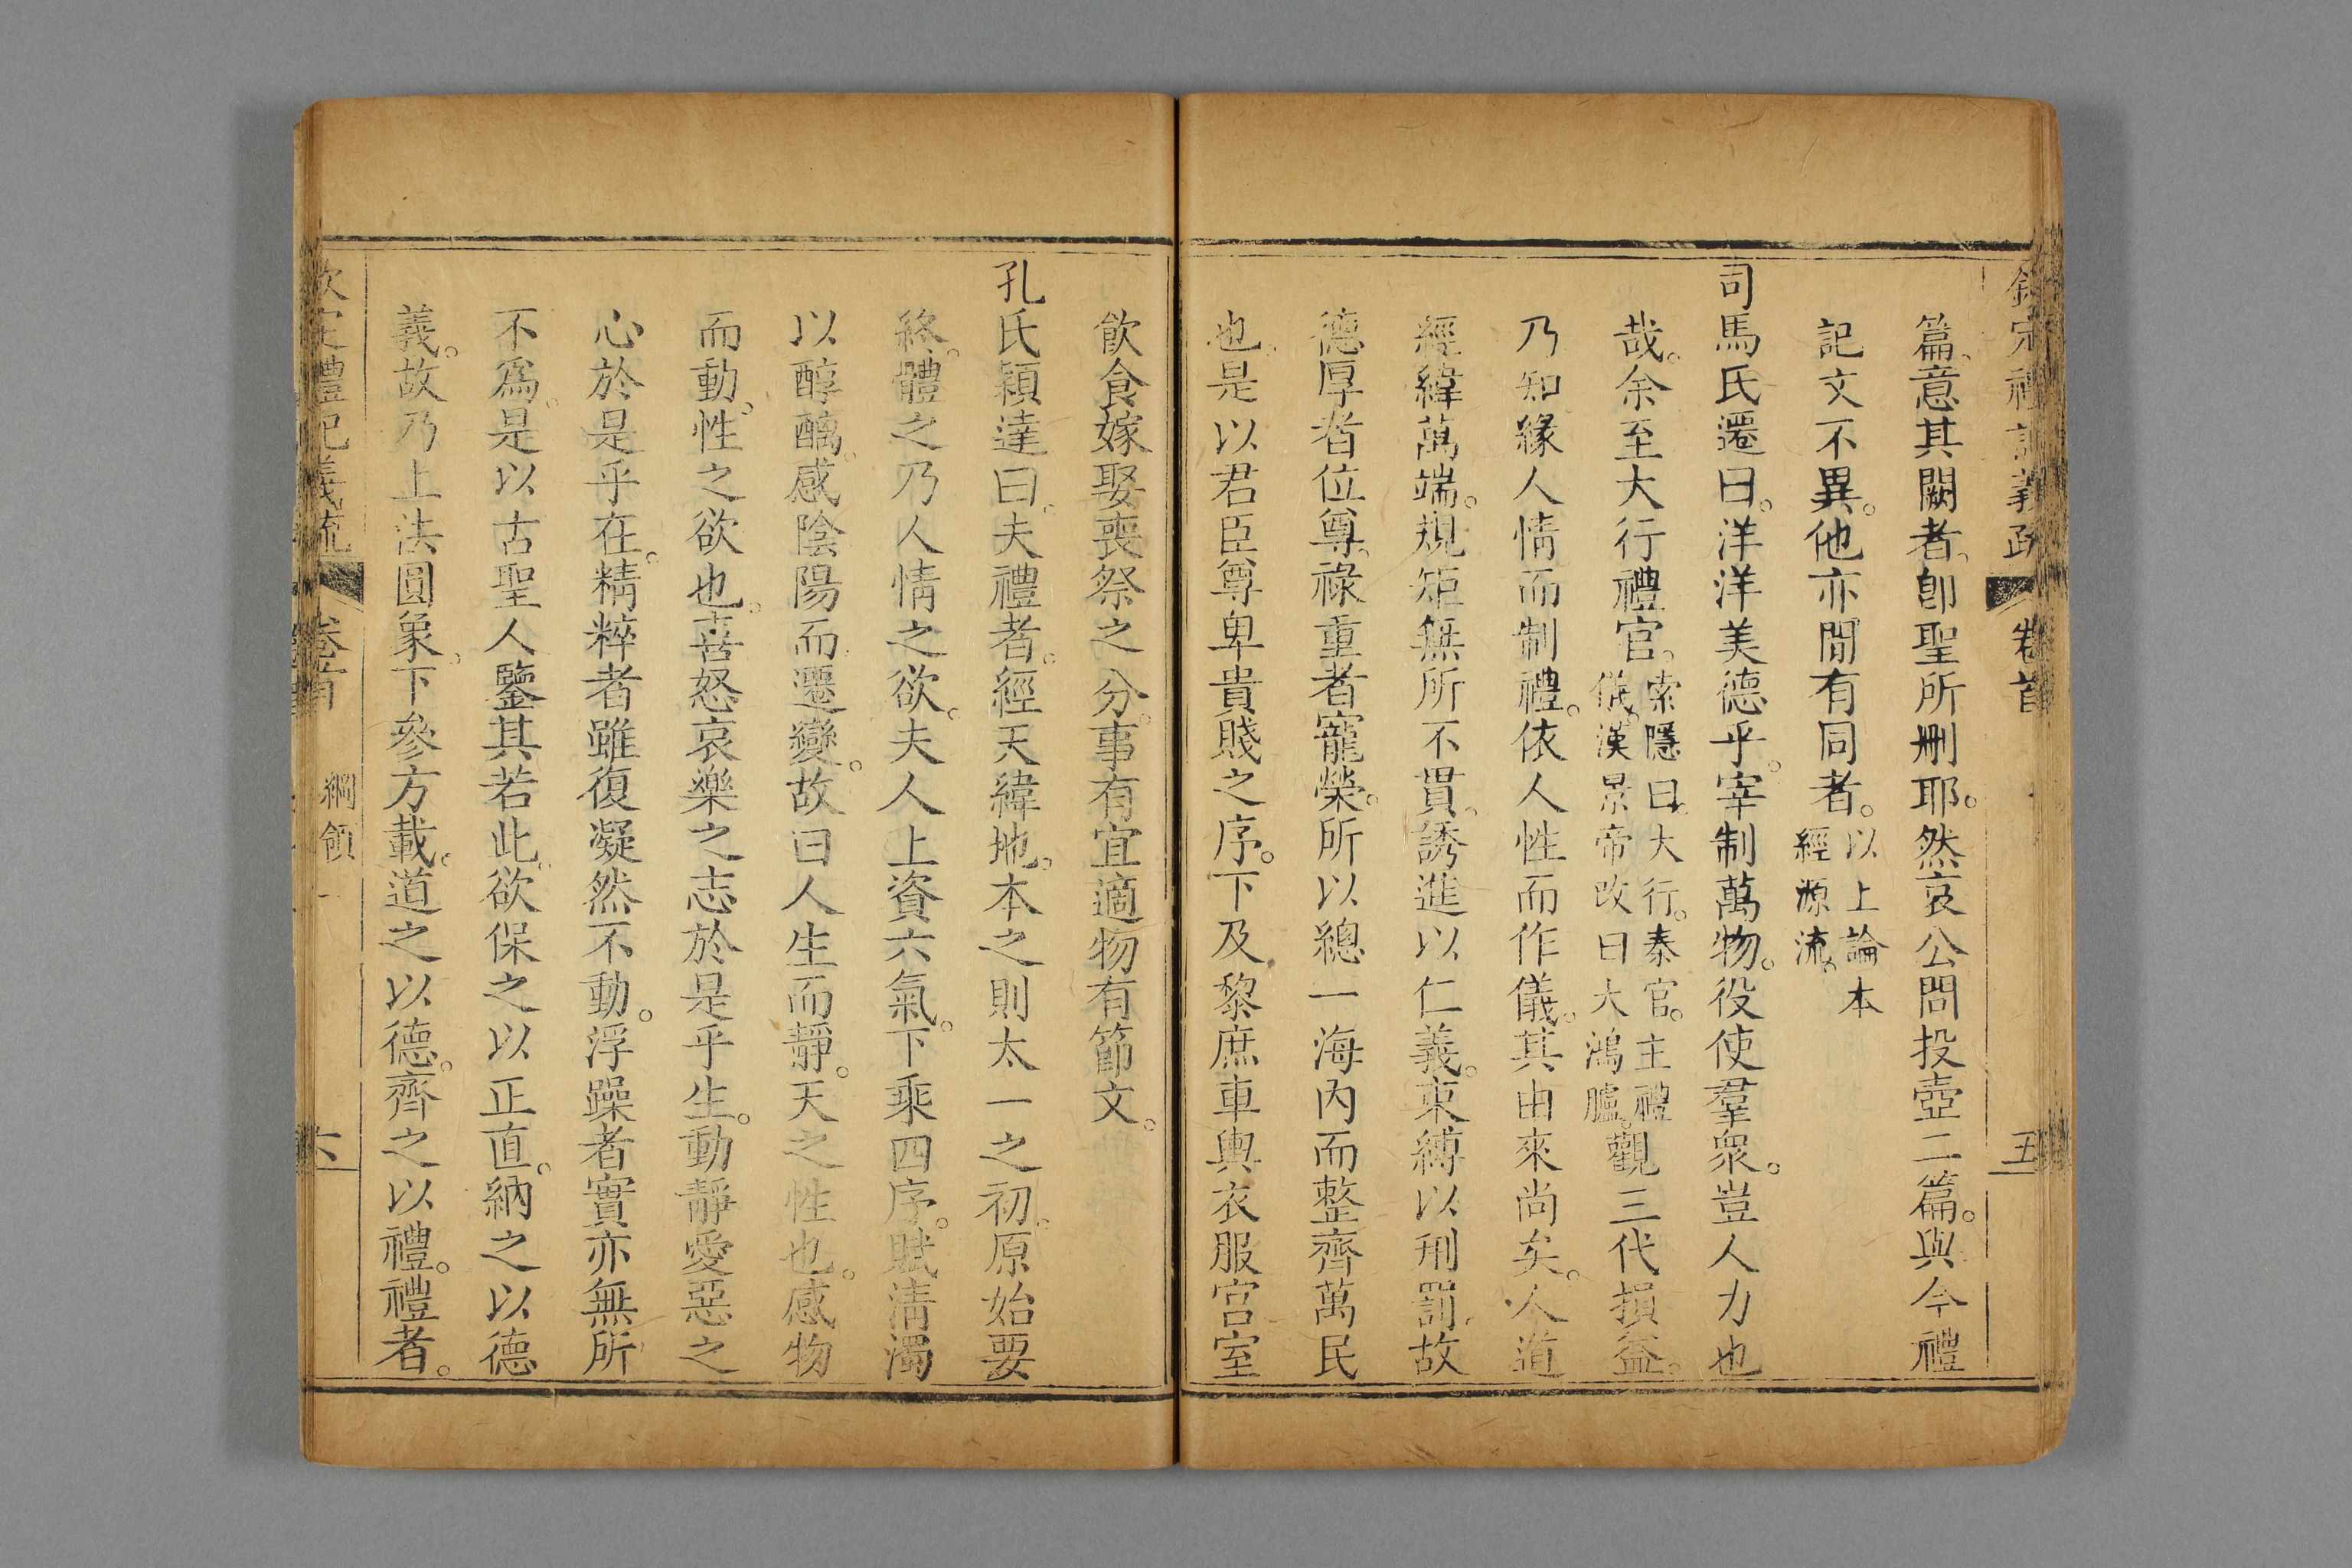 欽定禮記義疏 卷首 五
篇。意其闕者。卽聖所刪耶。然哀公問投壺二篇。與今禮
記文不異。他亦閒有同者。以上論本經源流。
司馬氏遷曰。洋洋美德乎。宰制萬物。役使羣衆。豈人力也
哉。余至大行禮官。索隱曰。大行。秦官。主禮儀。漢景帝改曰大鴻臚。觀三代損益。
乃知緣人情而制禮。依人性而作儀。其由來尚矣。人道
經緯萬端。規矩無所不貫。誘進以仁義。束縛以刑罰。故
德厚者位尊。祿重者寵榮。所以總一海內而整齊萬民
也。是以君臣尊卑貴賤之序。下及黎庶車輿衣服宮室
飮食嫁娶喪祭之分。事有宜適物有節文。
孔氏穎達曰。夫禮者。經天緯地。本之則太一之初。原始要
終。體之乃人情之欲。夫人上資六氣。下乘四序。賦淸濁
以醇醨。感陰陽而遷變。故曰人生而靜。天之性也。感物
而動。性之欲也。喜怒哀樂之志於是乎生。動靜愛惡之
心於是乎在。精粹者雖復凝然不動。浮躁者實亦無所
不爲。是以古聖人鑒其若此。欲保之以正直。納之以德
義。故乃上法圓象。下參方載。道之以德。齊之以禮。禮者。
欽定禮記義疏 卷首 綱領一 六